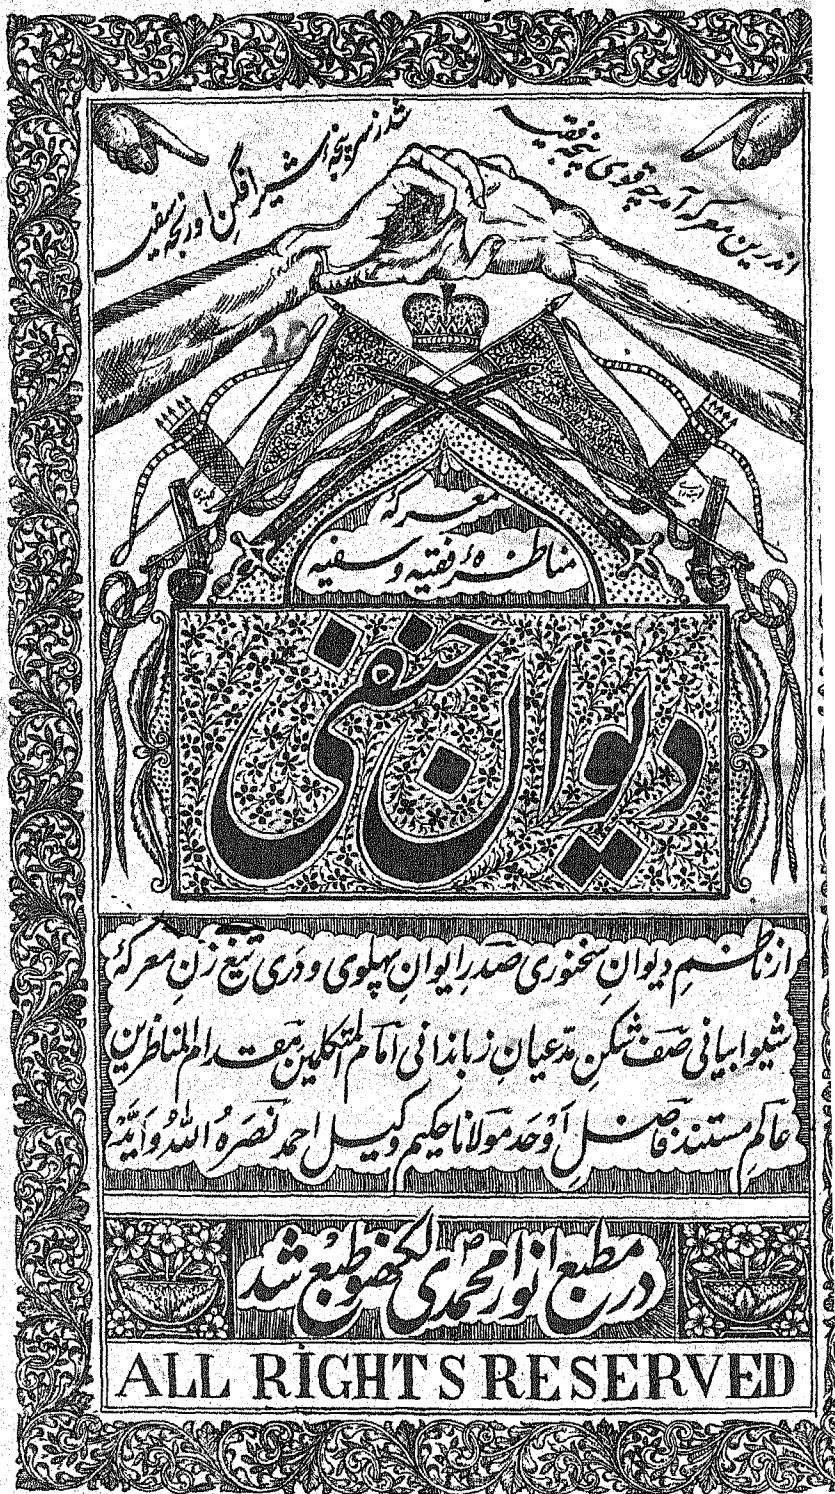 اندرین معرکه آمد چه قوی پنجه فقیه
شد ز سرپنجۀ شیر افگن او رنجه سفیه
معرکۀ
مناظرۀ فقیه و سفیه
دیوان حنفی
از ناظمِ دیوانِ سخنوری صدرِ ایوانِ پهلوی و دری تیغ زنِ معرکۀ
شیوا بیانی صف شکنِ مدّعیانِ زباندانی امام المتکلمین مقدام المناظرین
عالمِ مستند فاضلِ اَوْحَد مولانا حکیم وکیل احمد نَصَرَهُ اللهُ وَاَیَّدَهُ
در مطبع انوار محمدی لکھنؤ طبع شد
ALL RIGHTS RESERVED